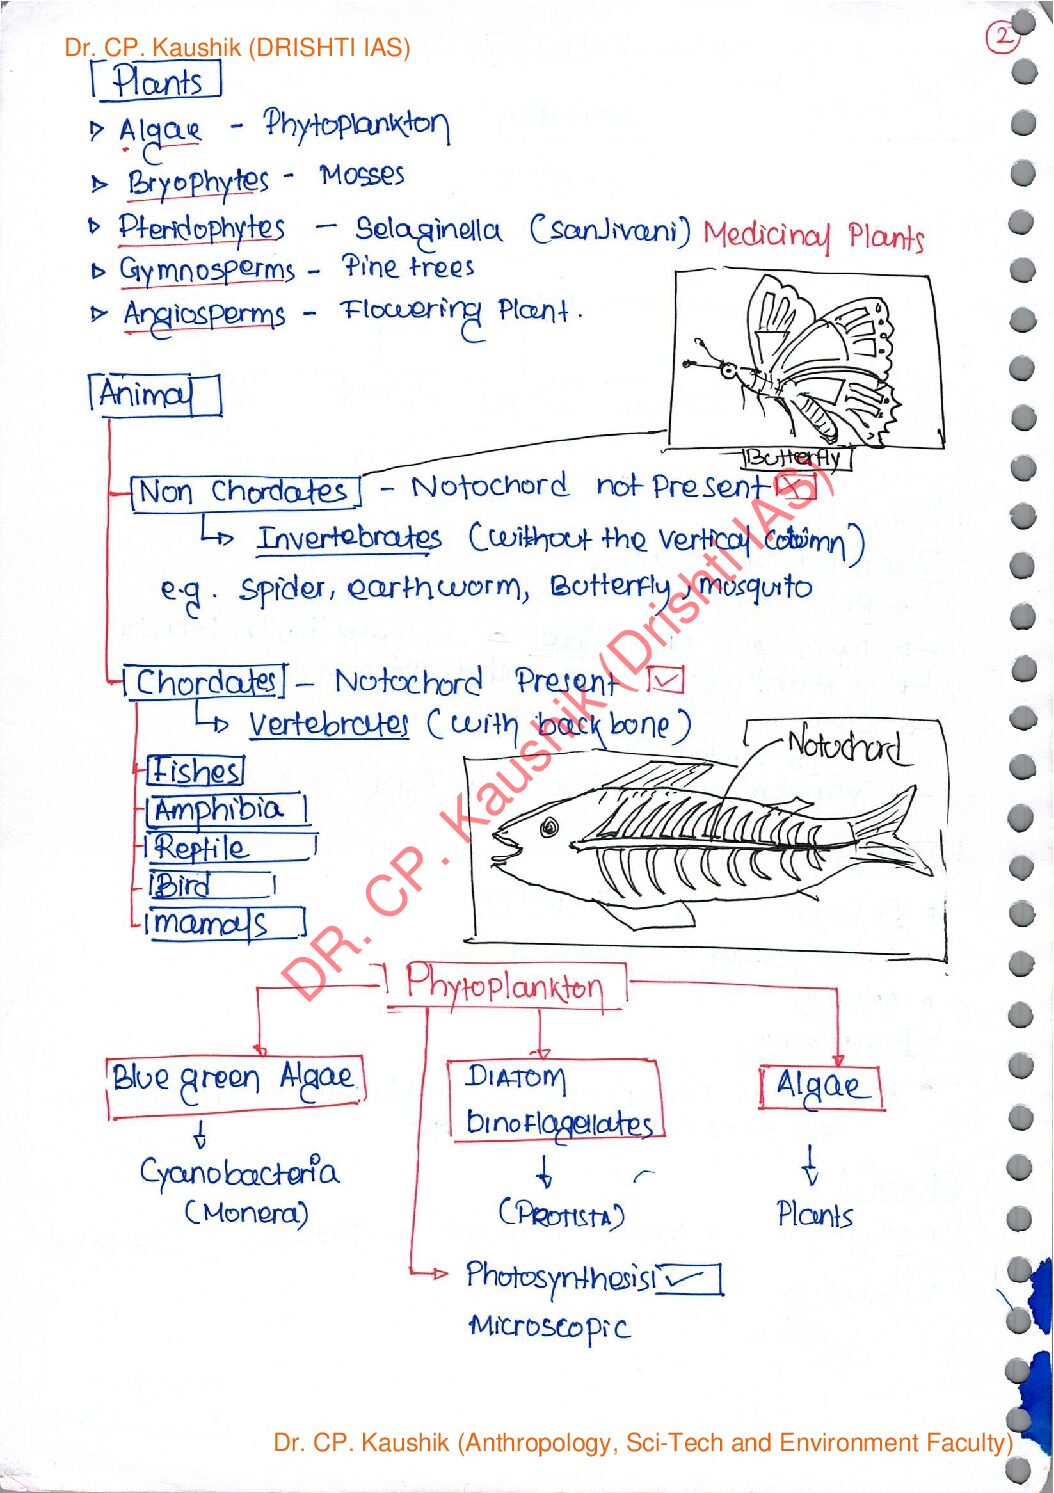 Dr. CP. Kaushik (DRISHTI IAS)
2
Plants
Algae - Phytoplankton
Bryophytes - Mosses
Pteridophytes - Selaginella (sanJivani) Medicinal Plants
Gymnosperms - Pine trees
Angiosperms - Flowering Plant.
Animal
Butterfly
Non Chordates - Notochord not Present
Invertebrates (without the vertical column)
e.g. spider, earthworm, Butterfly, mosquito
Chordates - Notochord Present
Vertebrates (with back bone)
Notochord
Fishes
Amphibia
Reptile
Bird
mamals
DR. CP. Kaushik (Drishti IAS)
Phytoplankton
Blue green Algae
DIATOM
Dinoflagellates
Algae
Cyanobacteria
(Monera)
(PROTISTA)
Plants
Photosynthesis
Microscopic
Dr. CP. Kaushik (Anthropology, Sci-Tech and Environment Faculty)